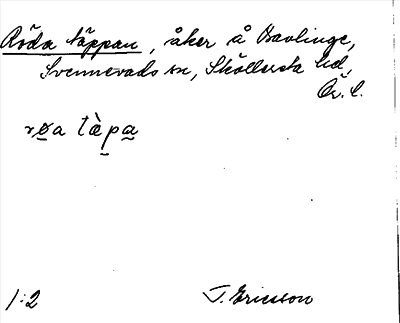 Röda täppan, åker å Bavlinge,
Svennevads sn, Sköllersta hd,
Ör. l.
rø̱a tὰ̱pa̱
1:2
T. Ericsson